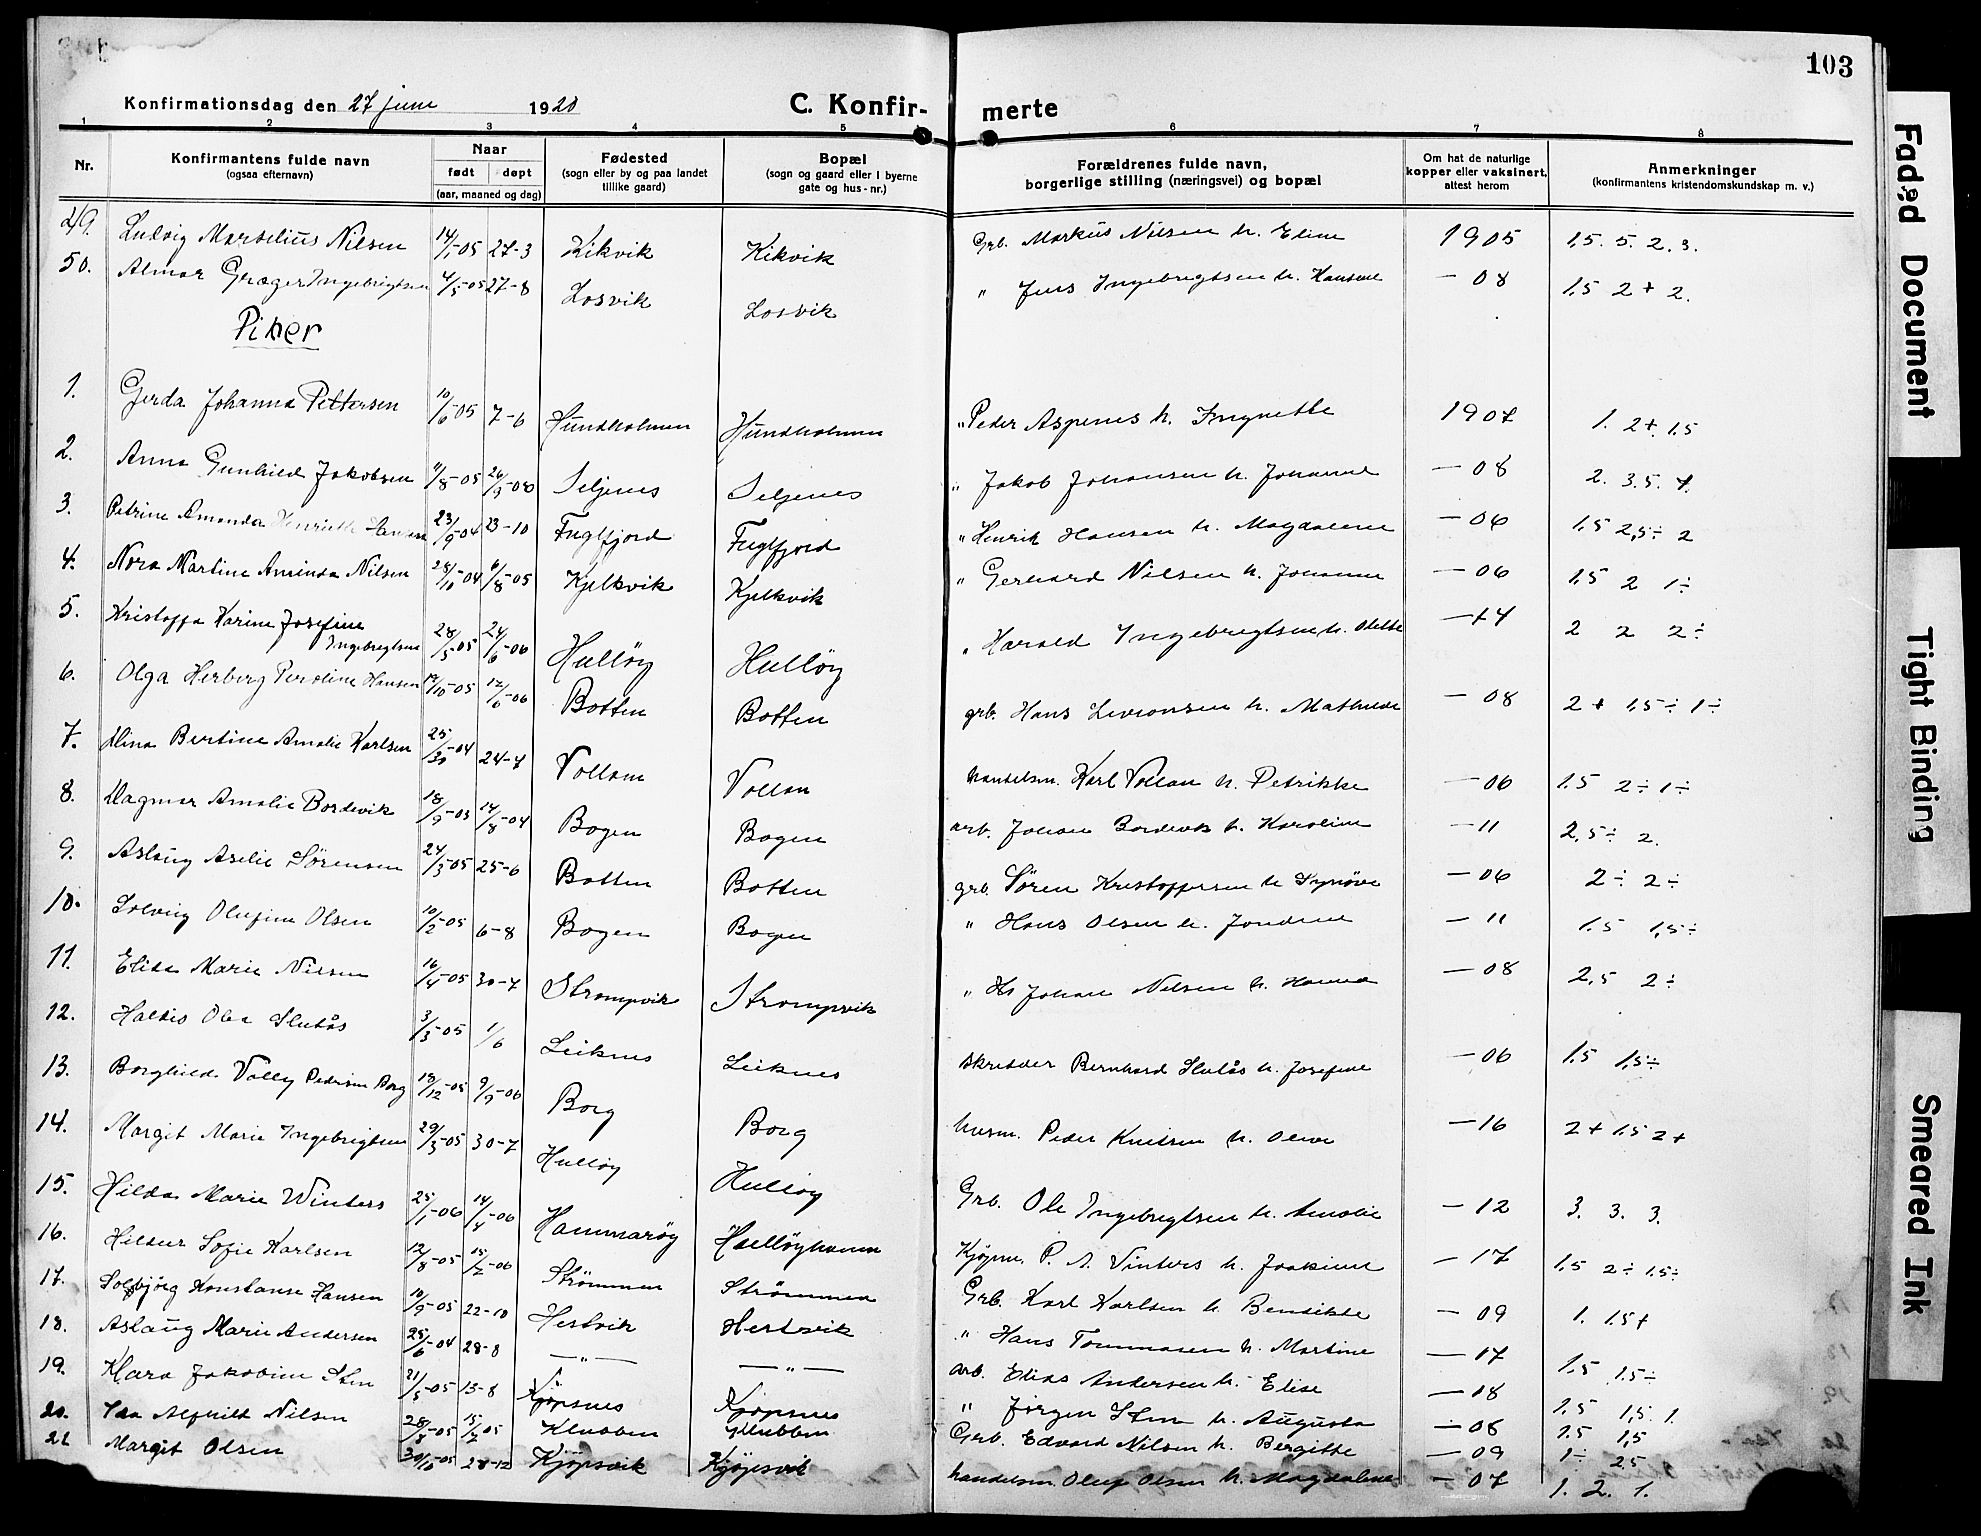 103
Konfirmationsdag den 27 juni 1920 C. Konfir- merte
1 2 3 4 5 6 7 8
Nr. Konfirmantens fulde navn (ogsaa efternavn) Naar født døpt (aar, maaned og dag) Fødested (sogn eller by og paa landet tillike gaard) Bopæl (sogn og gaard eller i byerne gate og hus-nr.) Forældrenes fulde navn, borgerlige stilling (næringsvei) og bopæl Om hat de naturlige kopper eller vaksinert, attest herom Anmerkninger (konfirmantens kristendomskundskap m. v.)
49. Ludvig Marselius Nilsen 14/1-05 27-3 Kikvik Kikvik Grb. Markus Nilsen h. Eline 1905 1,5. 5. 2. 3.
50. Almar Græger Ingebrigtsen 4/5-05 27-8 Losvik Losvik " Jens Ingebrigtsen h. Hansine - 08 1,5 2+ 2.
Piker
1. Gerda Johanna Pettersen 10/6-05 7-6 Hundholmen Hundholmen " Peder Aspenes h. 1907 1. 2+. 1.5
2. Anna Gunhild Jakobsen 9/8-05 26/9-08 Seljenes Seljenes " Jakob Johansen h. Johanne - 08 2. 3.5.
3. Petrine Amanda Henriette Hansen 23/9-04 23-10 Fuglfjord Fuglfjord " Henrik Hansen h. Magdalene - 06 1,5 2,5÷ 2
4. Nora Martine Aminda Nilsen 28/10-04 6/8-05 Kjelkvik Kjelkvik " Gerhard Nilsen h. Johanne - 06 1,5 2 1÷
5. Kristoffa Karine Josefine Ingebrigtsen 28/5-05 24/6-06 Hulløy Hulløy " Harald Ingebrigtsen h. Odette - 14 2 2 2÷
6. Olga Herberg Peroline Hansen 19/10-05 17/6-06 Botten Botten grb. Hans h. Mathilde - 08 2+ 1,5÷ 1÷
7. Mina Bertine Amalie Karlsen 25/30-04 24-7 Vollan Vollan handelsm. Karl Vollan h. Petrikke - 06 1.5 2÷ 1÷
8. Dagmar Amalie Bordevik 18/9-03 14/8-04 Bogen Bogen arb. Johan Bordevik h. Karoline - 11 2,5÷ 2.
9. Aslaug Aselie Sørensen 24/3-05 25-6 Botten Botten grb. Søren Kristoffersen h. Synøve - 06 2÷ 2÷
10. Solveig Olufine Olsen 10/2-05 6-8 Bogen Bogen " Hans Olsen h. - 11 1.5 1,5÷
11. Elida Marie Nilsen 16/4-05 30-7 Strompvik Strompvik " Johan Nilsen h. Hanna - 08 2,5 2÷
12. Haldis Olea Slutås 3/3-05 1/6 Leiknes Leiknes skredder Bernhard Slutås h. Josefine - 06 1.5 1,5÷
13. Borghild Vally Pedersen Borg 18/12-05 9/9-06 Borg Borg husm. Peder Knutsen h. Oline - 16 2+ 1.5 2+
14. Margit Marie Ingebrigtsen 29/3-05 30-7 Hulløy Hulløy Grb. Ole Ingebrigtsen h. Amalie - 12 3. 3. 3.
15. Hilda Marie Winters 25/1-06 14/4-06 Hammarøy Hulløyhamn Kjøpm. P. A. Vinters h. Joakime - 17 1.5 2÷ 1.5÷
16. Hildur Sofie Karlsen 12/8-05 15/2-06 Strømmen Strømmen Grb. Karl Karlsen h. Bendikte - 09 1. 1.5+
17. Solbjørg Konstanse Hansen 10/9-05 22-10 Hestvik Hestvik " Hans Tommasen h. Martine - 17 1.5 1.5÷
18. Aslaug Marie Andersen 25/6-04 28-8 - " - - " - arb. Elias Andersen h. Elise - 08 1,5 1,5. 1.
19. Klara Jakobine Sten 21/5-05 13-8 Kjøpsnes Kjøpsnes " Jørgen Sten h. Augusta - 08 1.5 1,5
20. Ida Alfhild Nilsen 28/3-05 15/7-05 Klubben Klubben Grb. Edvard Nilsen h. Bergitte - 09 1÷ 2.5
21. Margit Olsen 30/10-05 28-12 Kjøpsvik Kjøpsvik handelsm. Oluf Olsen h. Magdalene - 07 1. 2. 1.
Faded Document
Tight Binding
Smeared Ink